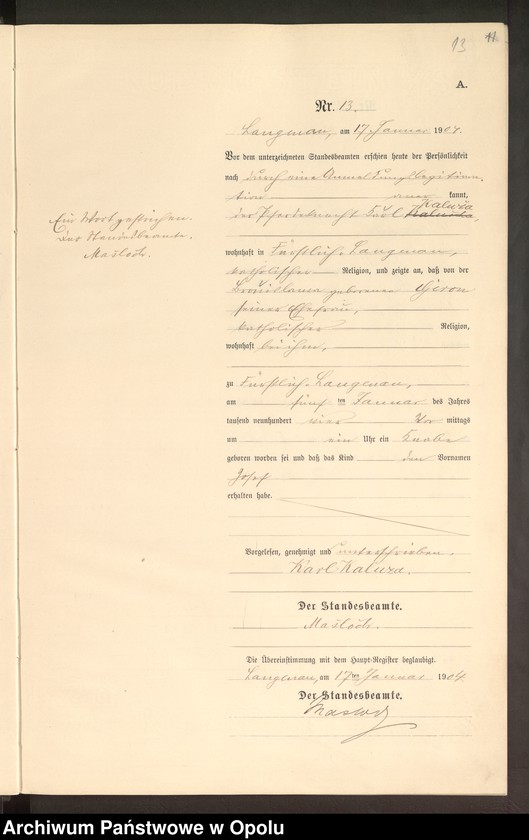 13
A.
Nr. 13.
Langenau, am 17. Januar 1904.
Vor dem unterzeichneten Standesbeamten erschien heute der Persönlichkeit
nach durch eine Anmeldungslegitima-
tion kannt,
der Pferdeknecht Karl Kaluża
Ein Wort gestrichen.
Der Standesbeamte.
wohnhaft in Fürstlich-Langenau,
katholischer Religion, und zeigte an, daß von der
Bronislawa geborenen
seiner Ehefrau,
katholischer Religion,
wohnhaft bei ihm,
zu Fürstlich-Langenau,
am fünf ten Januar des Jahres
tausend neunhundert vier Vor mittags
um ein Uhr ein Knabe
geboren worden sei und daß das Kind den Vornamen
Josef
erhalten habe.
Vorgelesen, genehmigt und unterschrieben.
Karl Kaluza.
Der Standesbeamte.
Die Übereinstimmung mit dem Haupt-Register beglaubigt.
Langenau, am 17ten Januar 1904.
Der Standesbeamte.
Archiwum Państwowe w Opolu